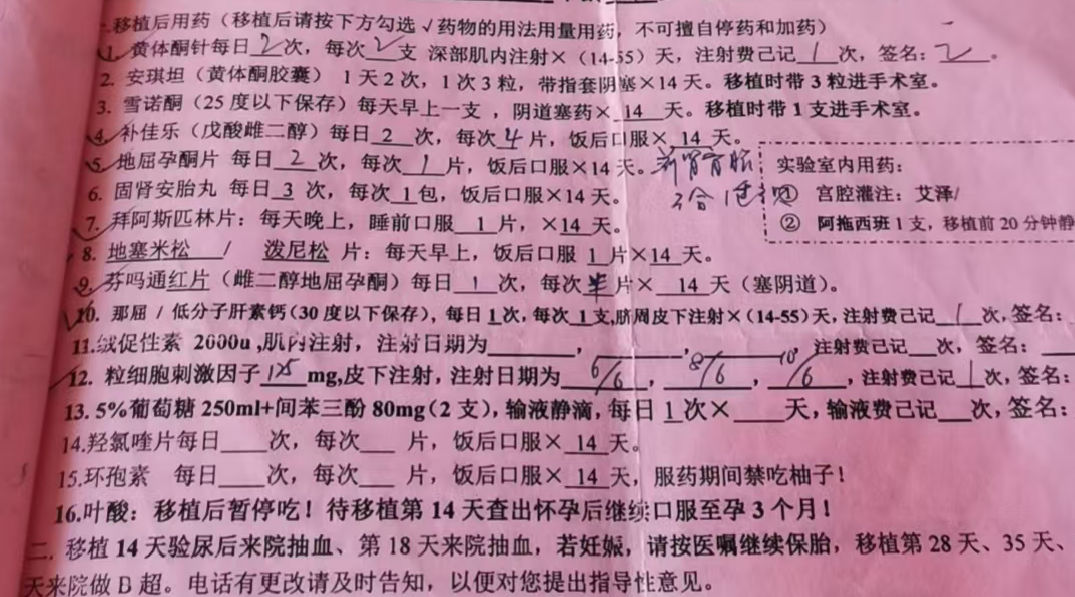 一.移植后用药（移植后请按下方勾选√药物的用法用量用药，不可擅自停药和加药）
1. 黄体酮针每日2次，每次2支 深部肌内注射×（14-55）天，注射费己记1次，签名：
2. 安琪坦（黄体酮胶囊） 1天2次，1次3粒，带指套阴塞×14天。移植时带3粒进手术室。
3. 雪诺酮（25度以下保存）每天早上一支 ，阴道塞药× 14 天。移植时带1支进手术室。
4. 补佳乐（戊酸雌二醇）每日 2 次，每次4片，饭后口服× 14 天。
5. 地屈孕酮片 每日 2 次，每次 1 片，饭后口服×14天。
实验室内用药：
6. 固肾安胎丸 每日 3 次，每次 1包，饭后口服×14天。
① 宫腔灌注：艾泽/
7. 拜阿斯匹林片：每天晚上，睡前口服 1 片，×14 天。
② 阿拖西班1支，移植前20分钟静
8. 地塞米松 / 泼尼松 片：每天早上，饭后口服 1 片×14 天。
9. 芬吗通红片（雌二醇地屈孕酮）每日 1 次，每次半片× 14 天（塞阴道）。
10. 那屈 / 低分子肝素钙(30度以下保存)，每日1次，每次1支,脐周皮下注射×(14-55)天，注射费己记1次，签名：
11.绒促性素 2000u ,肌内注射，注射日期为 ， ， ，注射费己记 次，签名：
12. 粒细胞刺激因子 125 mg,皮下注射，注射日期为 6/6 ， 8/6 ， 10/6 ，注射费己记1次，签名：
13. 5%葡萄糖250ml+间苯三酚80mg(2支)，输液静滴，每日1次× 天，输液费己记 次，签名：
14.羟氯喹片每日 次，每次 片，饭后口服× 14 天。
15.环孢素 每日 次，每次 片，饭后口服× 14 天，服药期间禁吃柚子！
16.叶酸：移植后暂停吃！待移植第14天查出怀孕后继续口服至孕3个月！
二. 移植14天验尿后来院抽血、第18天来院抽血，若妊娠，请按医嘱继续保胎，移植第28天、35天、
天来院做B超。电话有更改请及时告知，以便对您提出指导性意见。